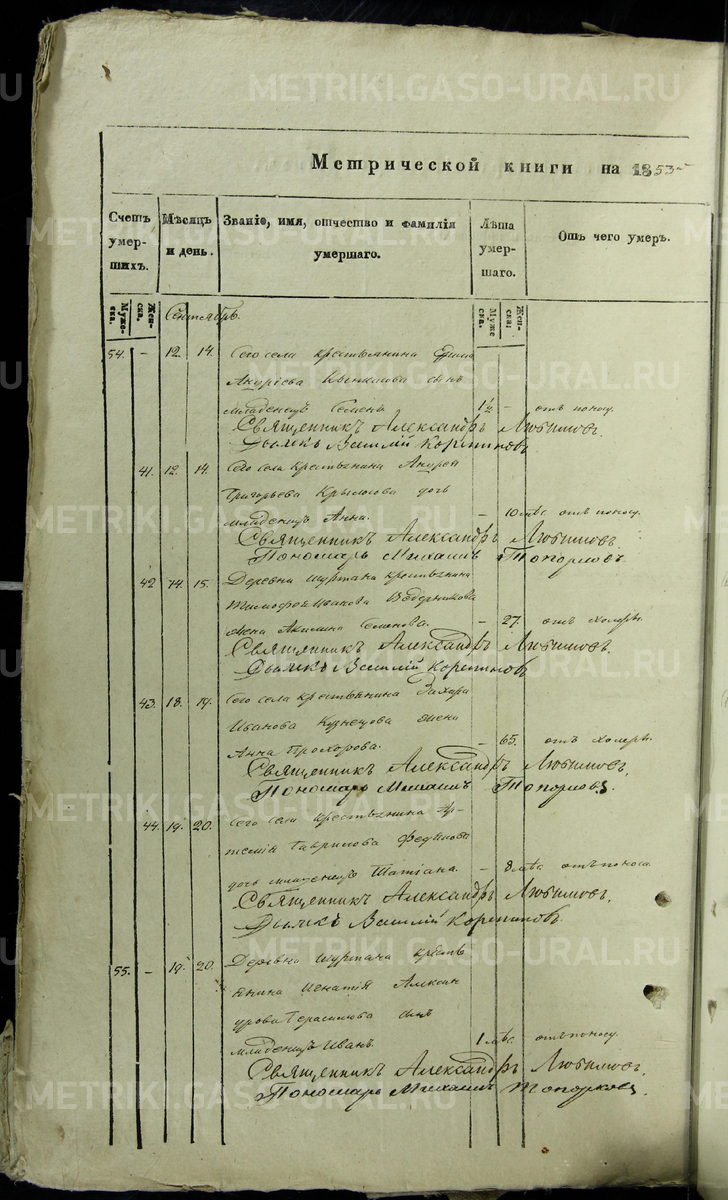 Метрической книги на 1853 г
Счетъ умер-шихъ.
Мѣсяцъ и день.
Званіе, имя, отчество и фамилія умершаго.
Лѣта умер-шаго.
Отъ чего умеръ.
Муже-ска.
Жен-ска.
Муже ска.
Жен-ска.
Сентябрь.
54. – 12. 14. Сего села крестьянина
Андреева сынъ
младенецъ Семенъ. 1½ – отъ поносу.
Священникъ Александръ Любимовъ.
Дьячекъ Василій
41. 12. 14. Сего села крестьянина Андрея
Григорьева Крылосова дочь
младенецъ Анна. – 10 мѣс отъ поносу.
Священникъ Александръ Любимовъ.
Пономарь Михаилъ Топорковъ
42 14. 15. Деревни Шуртана крестьянина
Тимофея Иванова Ведерникова
жена Акилина Семенова. – 27. отъ холеры.
Священникъ Александръ Любимовъ.
Дьячекъ Василій
43. 18. 19. Сего села крестьянина Захара
Иванова Кузнецова жена
Анна Прохорова. – 65. отъ холеры.
Священникъ Александръ Любимовъ.
Пономарь Михаилъ Топорковъ
44. 19. 20. Сего села крестьянина
Гаврилова
дочь младенецъ Татіана. – 8 мѣс отъ поноса.
Священникъ Александръ Любимовъ.
Дьячекъ Василій
55. – 19. 20. Деревни Шуртана кресть
янина Игнатія Алексан
дрова Герасимова сынъ
младенецъ Иванъ. 1 мѣс. отъ поносу.
Священникъ Александръ Любимовъ.
Пономарь Михаилъ Топорковъ
METRIKI.GASO-URAL.RU